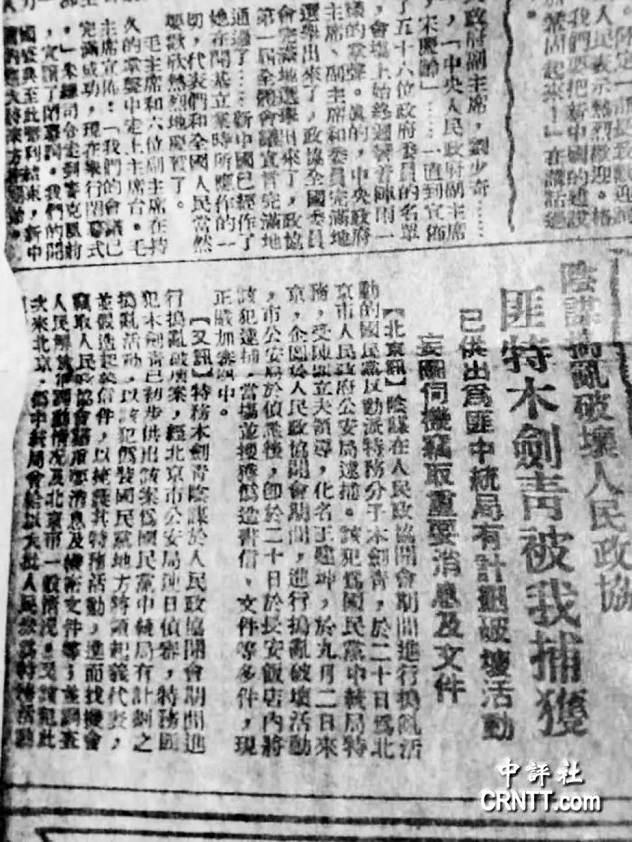 人民表示熱烈歡迎。格
我們要把新中國的建設
鞏固起來！」在講話過
民政府副主席，劉少奇……
，「中央人民政府副主席
，宋慶齡」……一直到宣佈
了五十六位政府委員的名單
，會場上始終迴響着陣雨一
樣的掌聲。眞的，中央政府
主席、副主席和委員完滿地
選舉出來了，政協全國委員
會完滿地選舉出來了，政協
第一屆全體會議宣告完滿地
通過了……新中國已經作了
她在開基立業時所應作的一
切，代表們和全國人民當然
要歡欣熱烈地慶賀了。
毛主席和六位副主席在持
久的掌聲中走上主席台。毛
主席宣佈：「我們的會議已
完滿成功，現在舉行閉幕式
。」朱總司令走到麥克風前
，宣讀了閉幕詞，我們的開
國盛典至此勝利結束，新中
陰謀搗亂破壞人民政協
匪特木劍靑被我捕獲
已供出爲匪中統局有計劃破壞活動
妄圖伺機竊取重要消息及文件
【北京訊】陰謀在人民政協開會期間進行搗亂活
動的國民黨反動派特務分子木劍靑，於二十日爲北
京市人民政府公安局逮捕。該犯爲國民黨中統局特
務，受陳匪立夫領導，化名王建坤，於九月二日來
京，企圖於人民政協開會期間，進行搗亂破壞活動
，市公安局於偵悉後，卽於二十日於長安飯店內將
該犯逮捕，當場並搜獲僞造書信、文件等多件，現
正嚴加審訊中。
【又訊】特務木劍靑陰謀於人民政協開會期間進
行搗亂破壞案，經北京市公安局連日偵審，特務匪
犯木劍靑已初步供出該案爲國民黨中統局有計劃之
搗亂活動，以該犯僞裝國民黨地方將領起義代表，
並假造起義信件，以掩護其特務活動，進而找機會
竊取人民政協會議重要消息及機密文件等，並調查
人民解放軍調動情況及北京市一般情況。又該犯此
次來北京，僞中統局會給以大批人民券爲特務活動
中評社
CRNTT.com